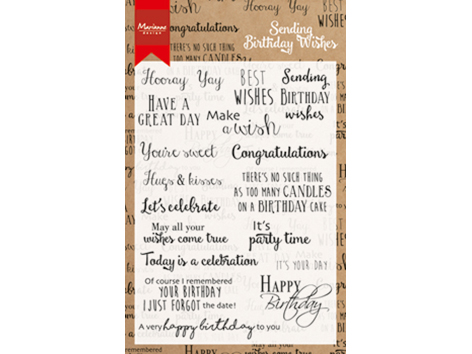 Marianne
design
Hooray Yay
Congratulations
THERE'S NO SUCH THING
Sending
Birthday Wishes
Hooray Yay
BEST
WISHES
Sending
BIRTHDAY
wishes
HAVE A
GREAT DAY
Make
a wish
You're sweet
Congratulations
Hugs & kisses
THERE'S NO SUCH THING
AS TOO MANY CANDLES
ON A BIRTHDAY CAKE
Let's celebrate
May all your
wishes come true
It's
party time
Today is a celebration
IT'S YOUR DAY
Of course I remembered
YOUR BIRTHDAY
I JUST FORGOT the date!
HAPPY
Birthday
A very happy birthday to you